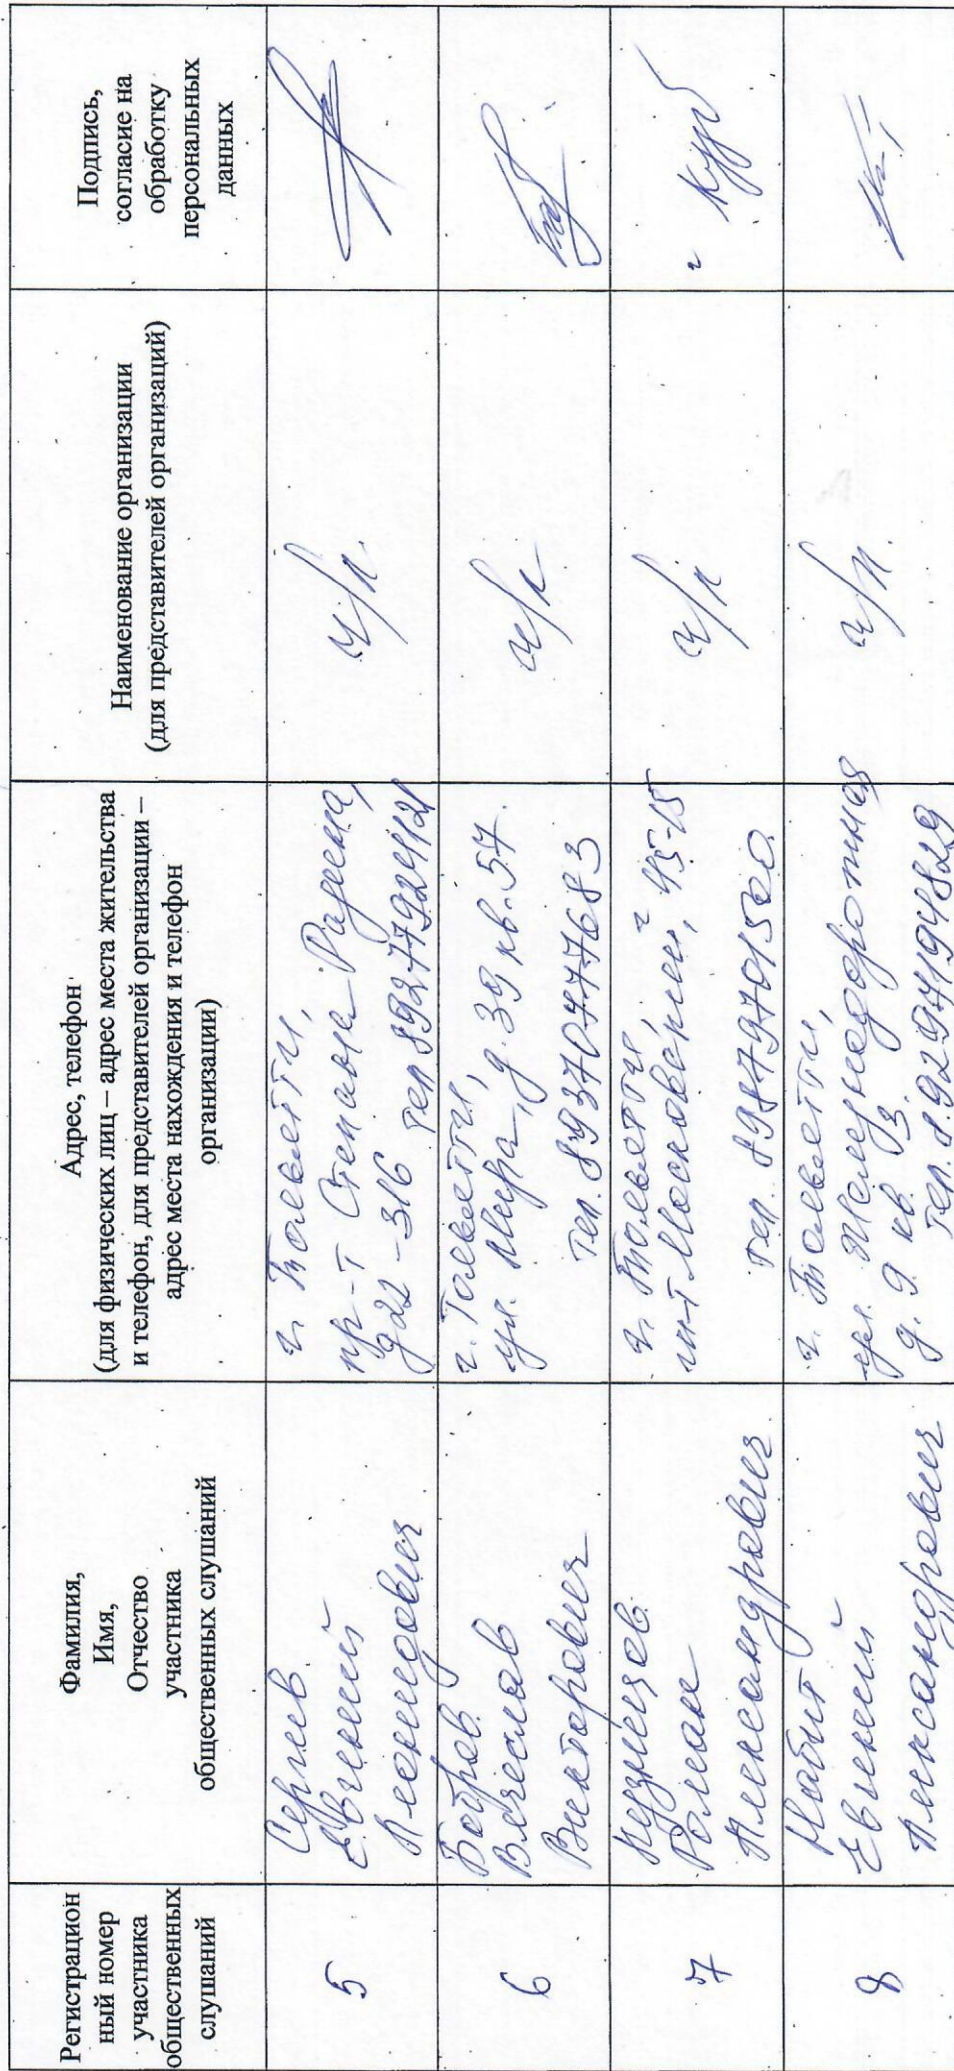 Регистрацион
ный номер
участника
общественных
слушаний
Фамилия,
Имя,
Отчество
участника
общественных слушаний
Адрес, телефон
(для физических лиц – адрес места жительства
и телефон, для представителей организации –
адрес места нахождения и телефон
организации)
Наименование организации
(для представителей организаций)
Подпись,
согласие на
обработку
персональных
данных
5
Евгений
Леонидович
г. Тольятти,
пр-т Степана Разина,
д22-316 тел.
ч/л.
6
Бобров
Вячеслав
Викторович
г. Тольятти,
ул. Мира, д. 39 кв. 57
тел. 89370777683
ч/л
7
Кузнецов
Роман
Александрович
г. Тольятти
Московский, 45-15
тел. 89879701500
ч/л
8
Евгений
Александрович
г. Тольятти,
ул. Железнодорожная
д. 9 кв. 3.
тел.
ч/л.